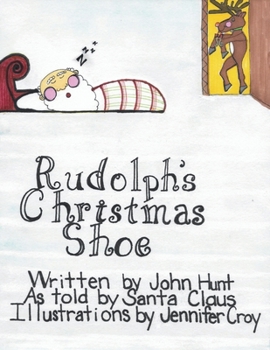 zzz
Rudolph's
Christmas
Shoe
Written by John Hunt
As told by Santa Claus
Illustrations by Jennifer Croy